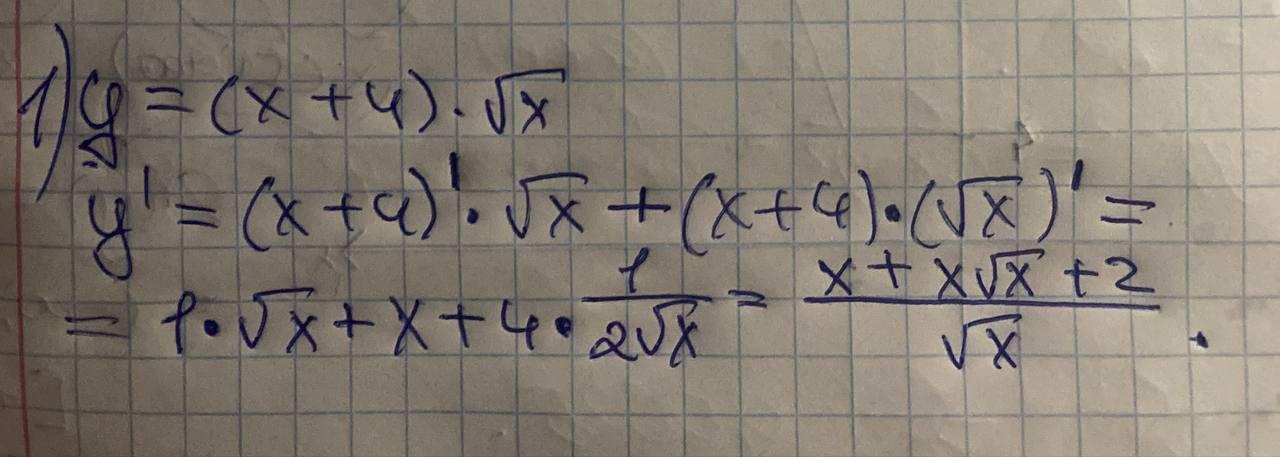 1) y = (x + 4) · √x
y' = (x + 4)' · √x + (x + 4) · (√x)' =
= 1 · √x + x + 4 · 1/(2√x) = (x + x√x + 2)/√x .